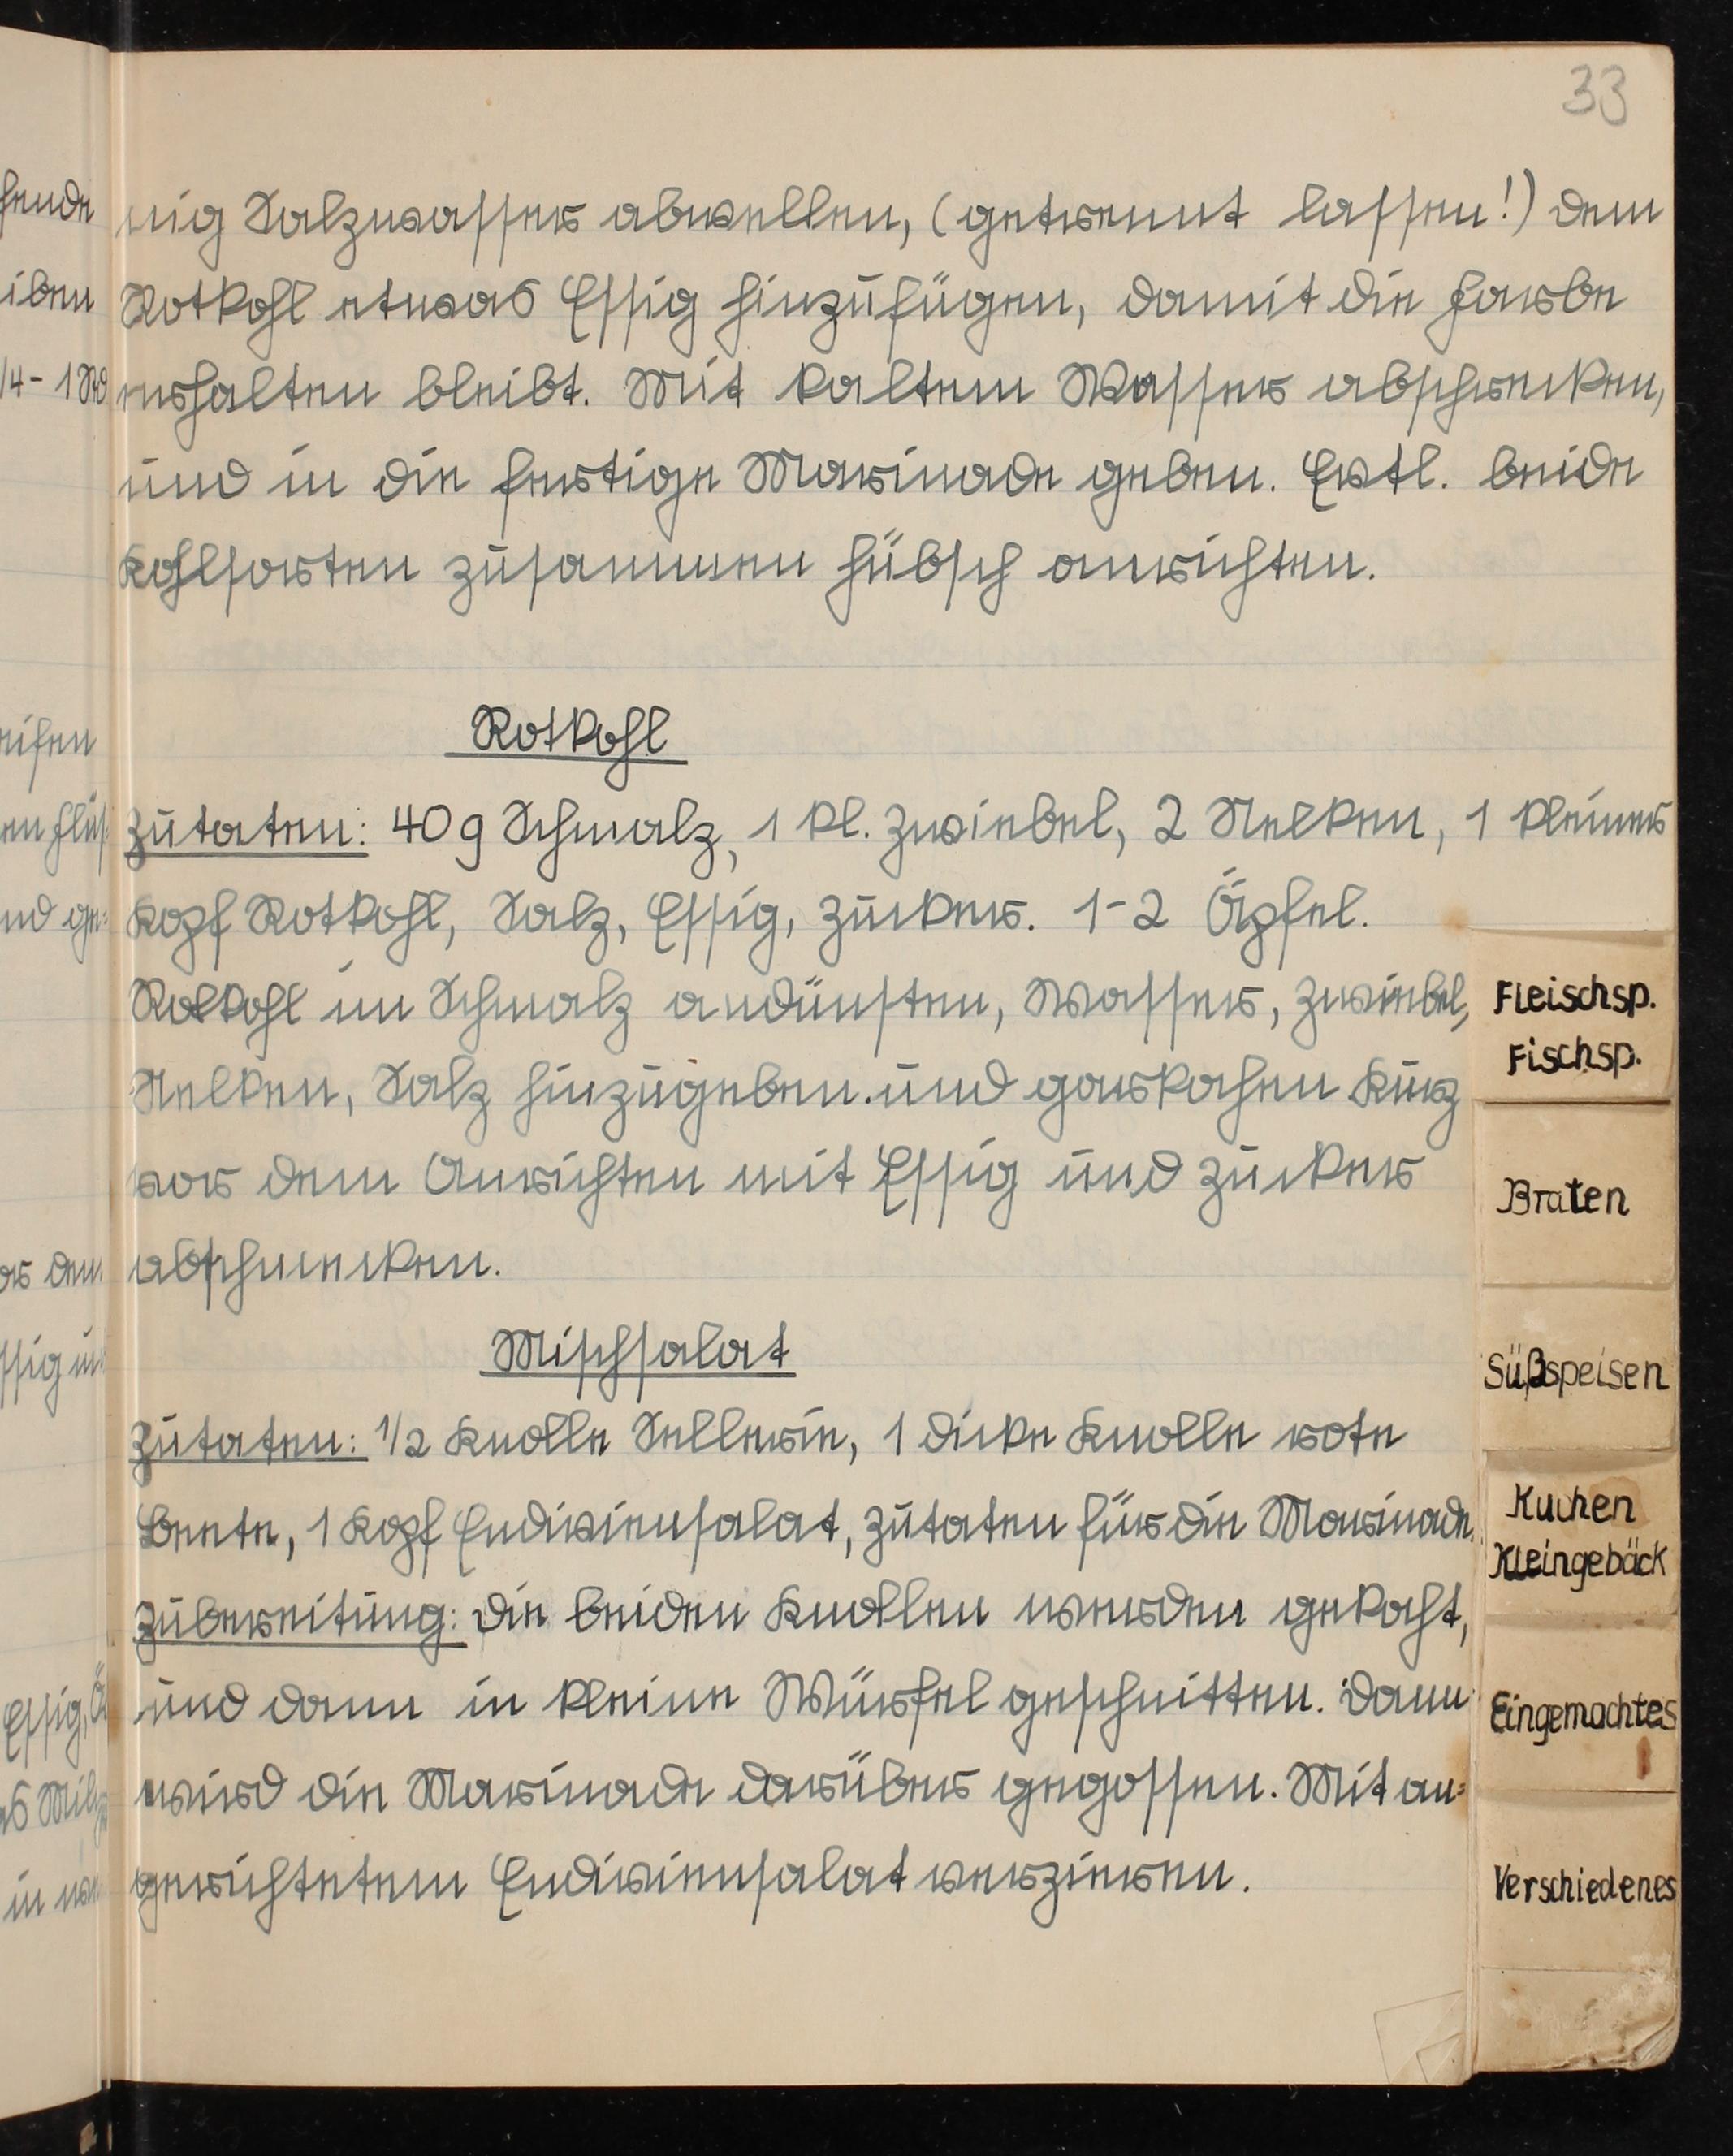 33
nig Salzwasser abwellen, (getrennt lassen!) dem
Rotkohl etwas Essig hinzufügen, damit die Farbe
erhalten bleibt. Mit kaltem Wasser abschrecken,
und in die fertige Marinade geben. Evtl. beide
Kohlsorten zusammen hübsch anrichten.
Rotkohl
Zutaten: 40 g Schmalz, 1 kl. Zwiebel, 2 Nelken, 1 kleiner
Kopf Rotkohl, Salz, Essig, Zucker. 1-2 Äpfel.
Rotkohl im Schmalz andünsten, Wasser, Zwiebel,
Nelken, Salz hinzugeben. und garkochen Kurz
vor dem Anrichten mit Essig und Zucker
abschmecken.
Mischsalat
Zutaten: 1/2 Knolle Sellerie, 1 dicke Knolle rote
Beete, 1 Kopf Endiviensalat, Zutaten für die Marinade.
Zubereitung: Die beiden Knollen werden gekocht,
und dann in kleine Würfel geschnitten. Dann
wird die Marinade darüber gegossen. Mit an=
gerichtetem Endiviensalat verzieren.
Fleischsp.
Fischsp.
Braten
Süßspeisen
Kuchen
Kleingebäck
Eingemachtes
Verschiedenes